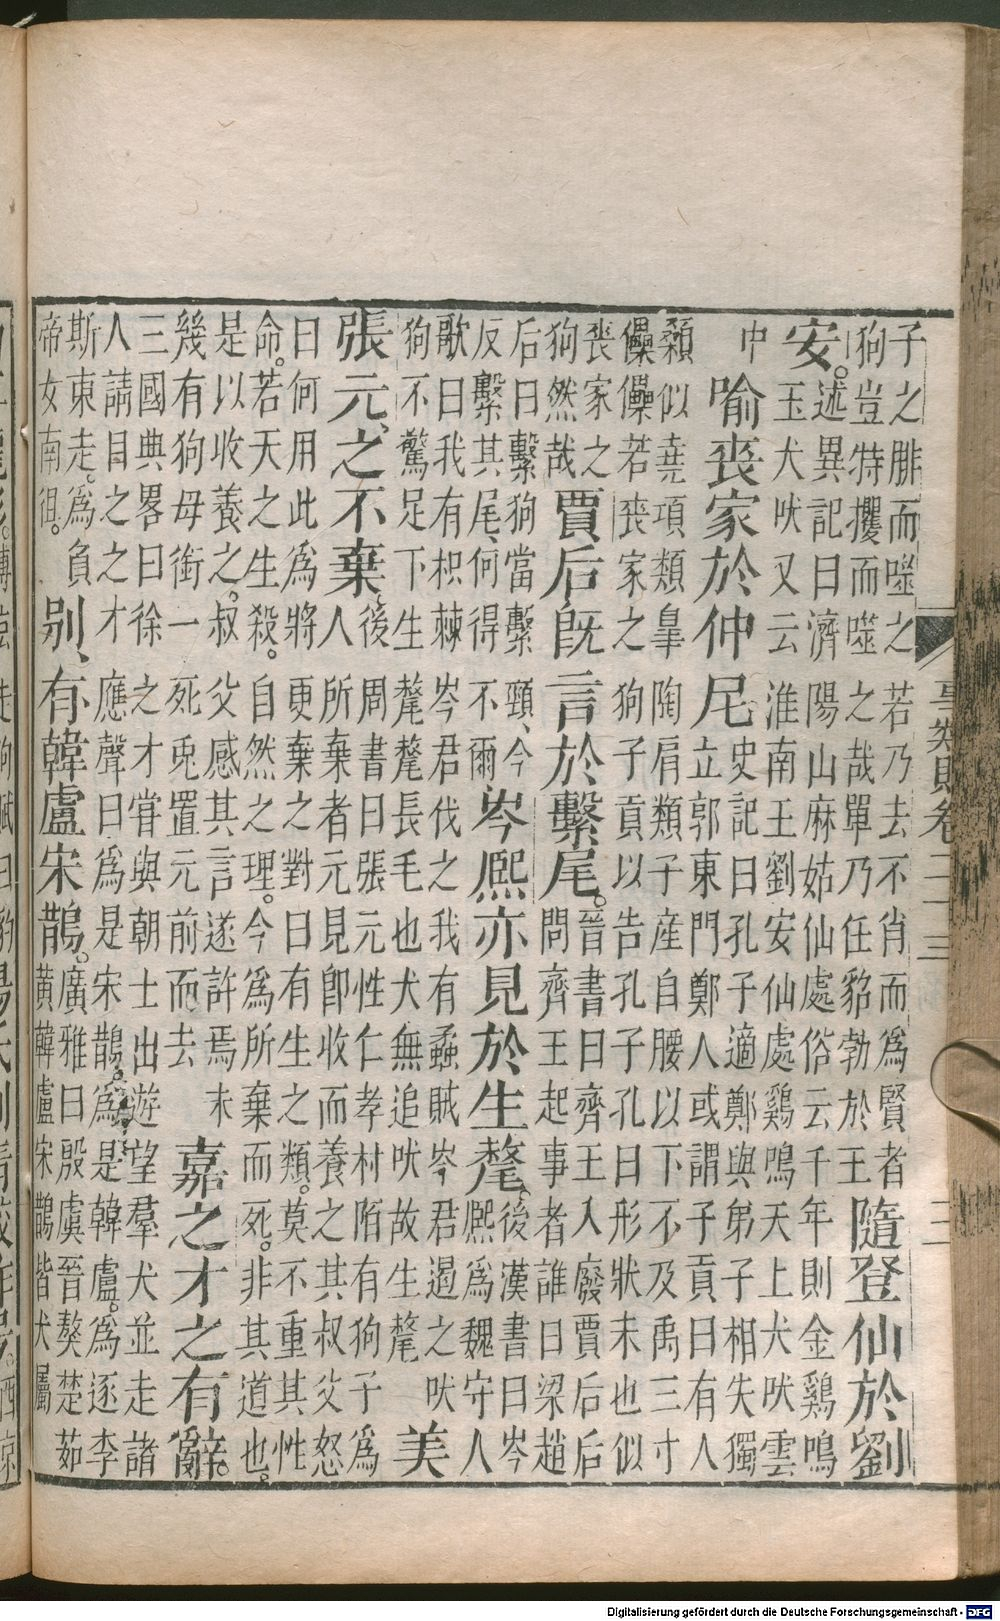 子之腓而噬之若乃去不肖而為賢者
狗豈特攫而噬之哉單乃任貂勃於王
隨登仙於劉
安。
述異記曰濟陽山麻姑仙處俗云千年則金鷄鳴
玉犬吠又云淮南王劉安仙處鷄鳴天上犬吠雲
中
喻喪家於仲尼
史記曰孔子適鄭與弟子相失獨
立郭東門鄭人或謂子貢曰有人
顙似堯項類皐陶肩類子産自腰以下不及禹三寸
儽儽若喪家之狗子貢以告孔子孔曰形狀未也似
喪家之
狗然哉
賈后旣言於繫尾。
晉書曰齊王入廢賈后后
問齊王起事者誰曰梁趙
后曰繫狗當繫頸、今
反繫其尾、何得不爾
岑熈亦見於生氂、
後漢書曰岑
熈為魏守人
歌曰我有枳棘岑君伐之我有蟊賊岑君遏之
狗不驚足下生氂氂長毛也犬無追吠故生氂
吠
美
張元、之不棄、
後周書曰張元性仁孝村陌有狗子為
人所棄者元見卽收而養之其叔父怒
曰何用此為將更棄之對曰有生之類。莫不重其性
命。若天之生殺。自然之理。今為所棄而死。非其道也。
是以收養之。叔父感其言遂許焉未
幾有狗母銜一死兎置元前而去
嘉之才之有辭。
三國典畧曰徐之才甞與朝士出遊望羣犬並走諸
人請目之之才應聲曰為是宋鵲。為是韓盧。為逐李
斯東走。為負
帝女南徂。
別、有韓盧宋鵲。
廣雅曰殷虞晉獒楚茹
黃韓盧宋鵲皆犬屬
卷二十三
三
Digitalisierung gefördert durch die Deutsche Forschungsgemeinschaft - DFG